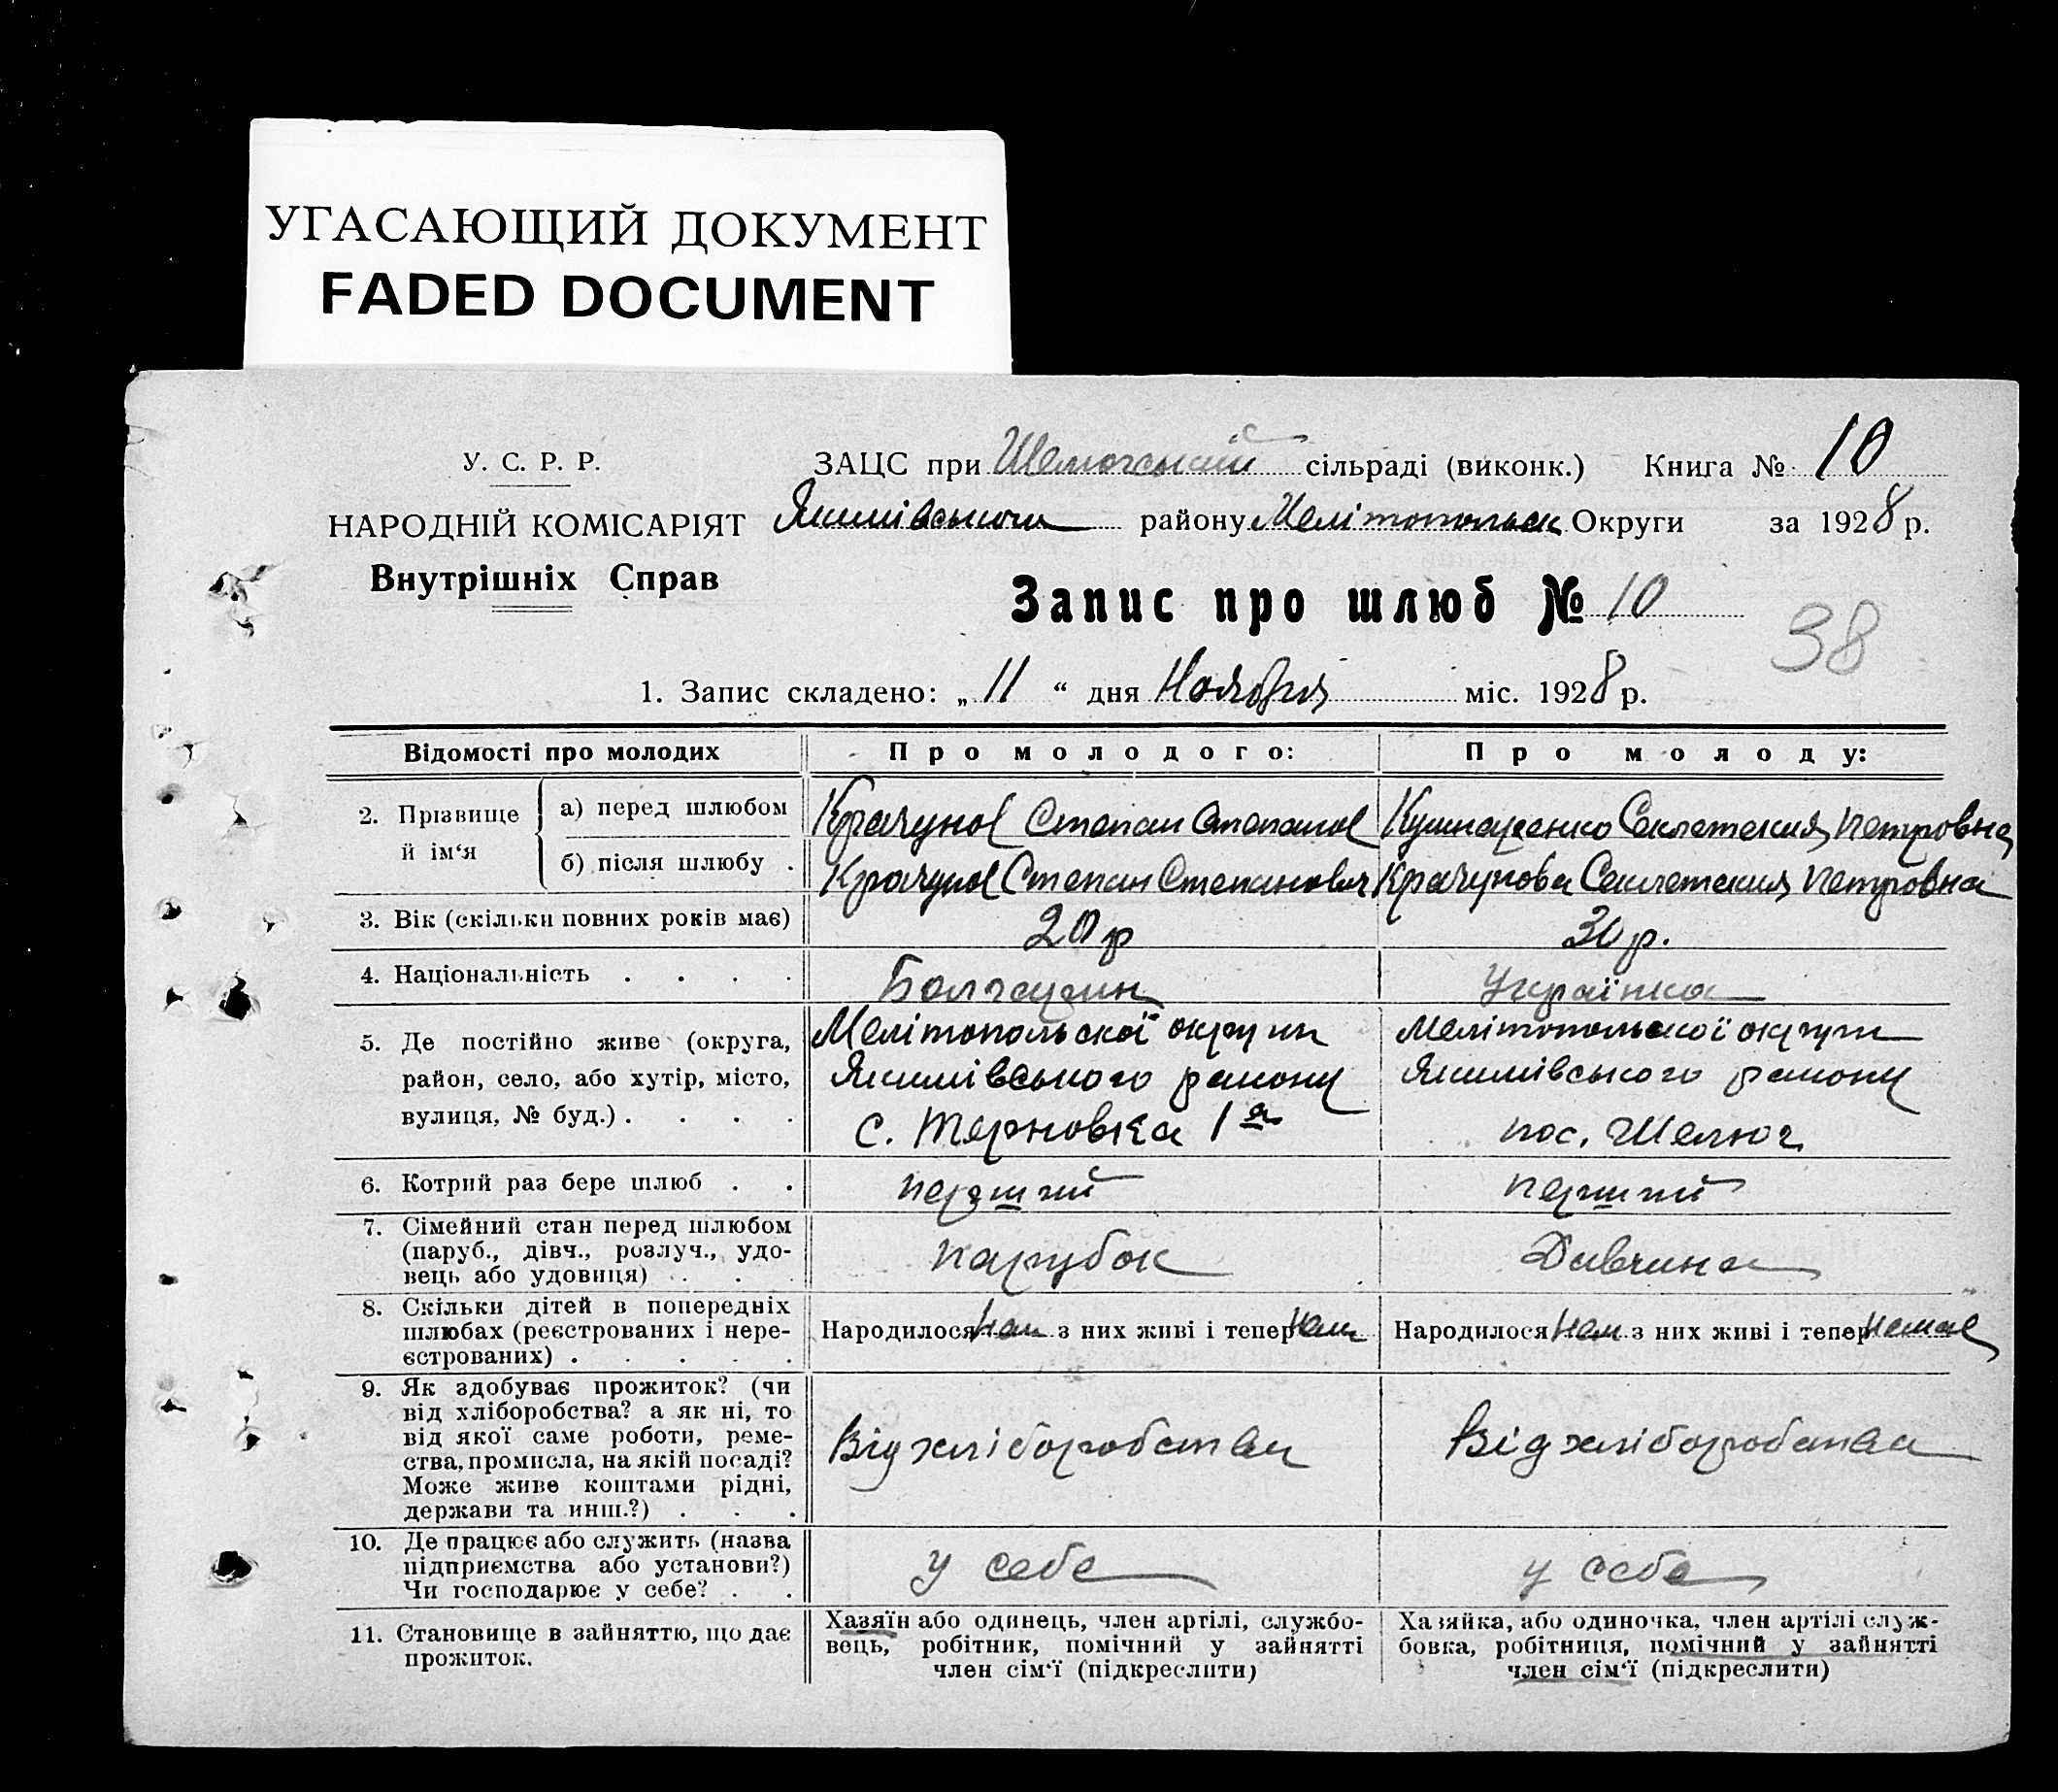 УГАСАЮЩИЙ ДОКУМЕНТ
FADED DOCUMENT
У. С. Р. Р.
НАРОДНІЙ КОМІСАРІЯТ
Внутрішніх Справ
ЗАЦС при сільраді (виконк.) Книга № 10
Якимівського району Мелітопольск Округи за 1928 р.
Запис про шлюб № 10
38
1. Запис складено: „ 11 “ дня Ноября міс. 1928 р.
Відомості про молодих
Про молодого:
Про молоду:
2. Прізвище й ім‘я
а) перед шлюбом
Крачунов Степан Степанов
Кушнаренко Секлетския Петровна
б) після шлюбу .
Крачунов Степан Степанович
Крачунова Секлетския Петровна
3. Вік (скільки повних років має)
20 р
30 р.
4. Національність . . . .
Болгарин
Українка
5. Де постійно живе (округа,
район, село, або хутір, місто,
вулиця, № буд.) . . . .
Мелітопольскої округи
Якимівського району
с. Терновка 1а
Мелітопольскої округи
Якимівського району
пос. Шелюг
6. Котрий раз бере шлюб . .
перший
перший
7. Сімейний стан перед шлюбом
(паруб., дівч., розлуч., удо-
вець або удовиця) . . .
парубок
Дивчина
8. Скільки дітей в попередніх
шлюбах (реєстрованих і нере-
єстрованих) . . . . .
Народилося нем з них живі і тепер нем
Народилося нем з них живі і тепер немає
9. Як здобуває прожиток? (чи
від хліборобства? а як ні, то
від якої саме роботи, реме-
ства, промисла, на якій посаді?
Може живе коштами рідні,
держави та инш.?) . . .
Від хліборобства
Від хліборобства
10. Де працює або служить (назва
підприємства або установи?)
Чи господарює у себе? . .
у себе
у себе
11. Становище в зайняттю, що дає
прожиток.
Хазяїн або одинець, член артілі, службо-
вець, робітник, помічний у зайнятті
член сім‘ї (підкреслити)
Хазяйка, або одиночка, член артілі служ-
бовка, робітниця, помічний у зайнятті
член сім‘ї (підкреслити)